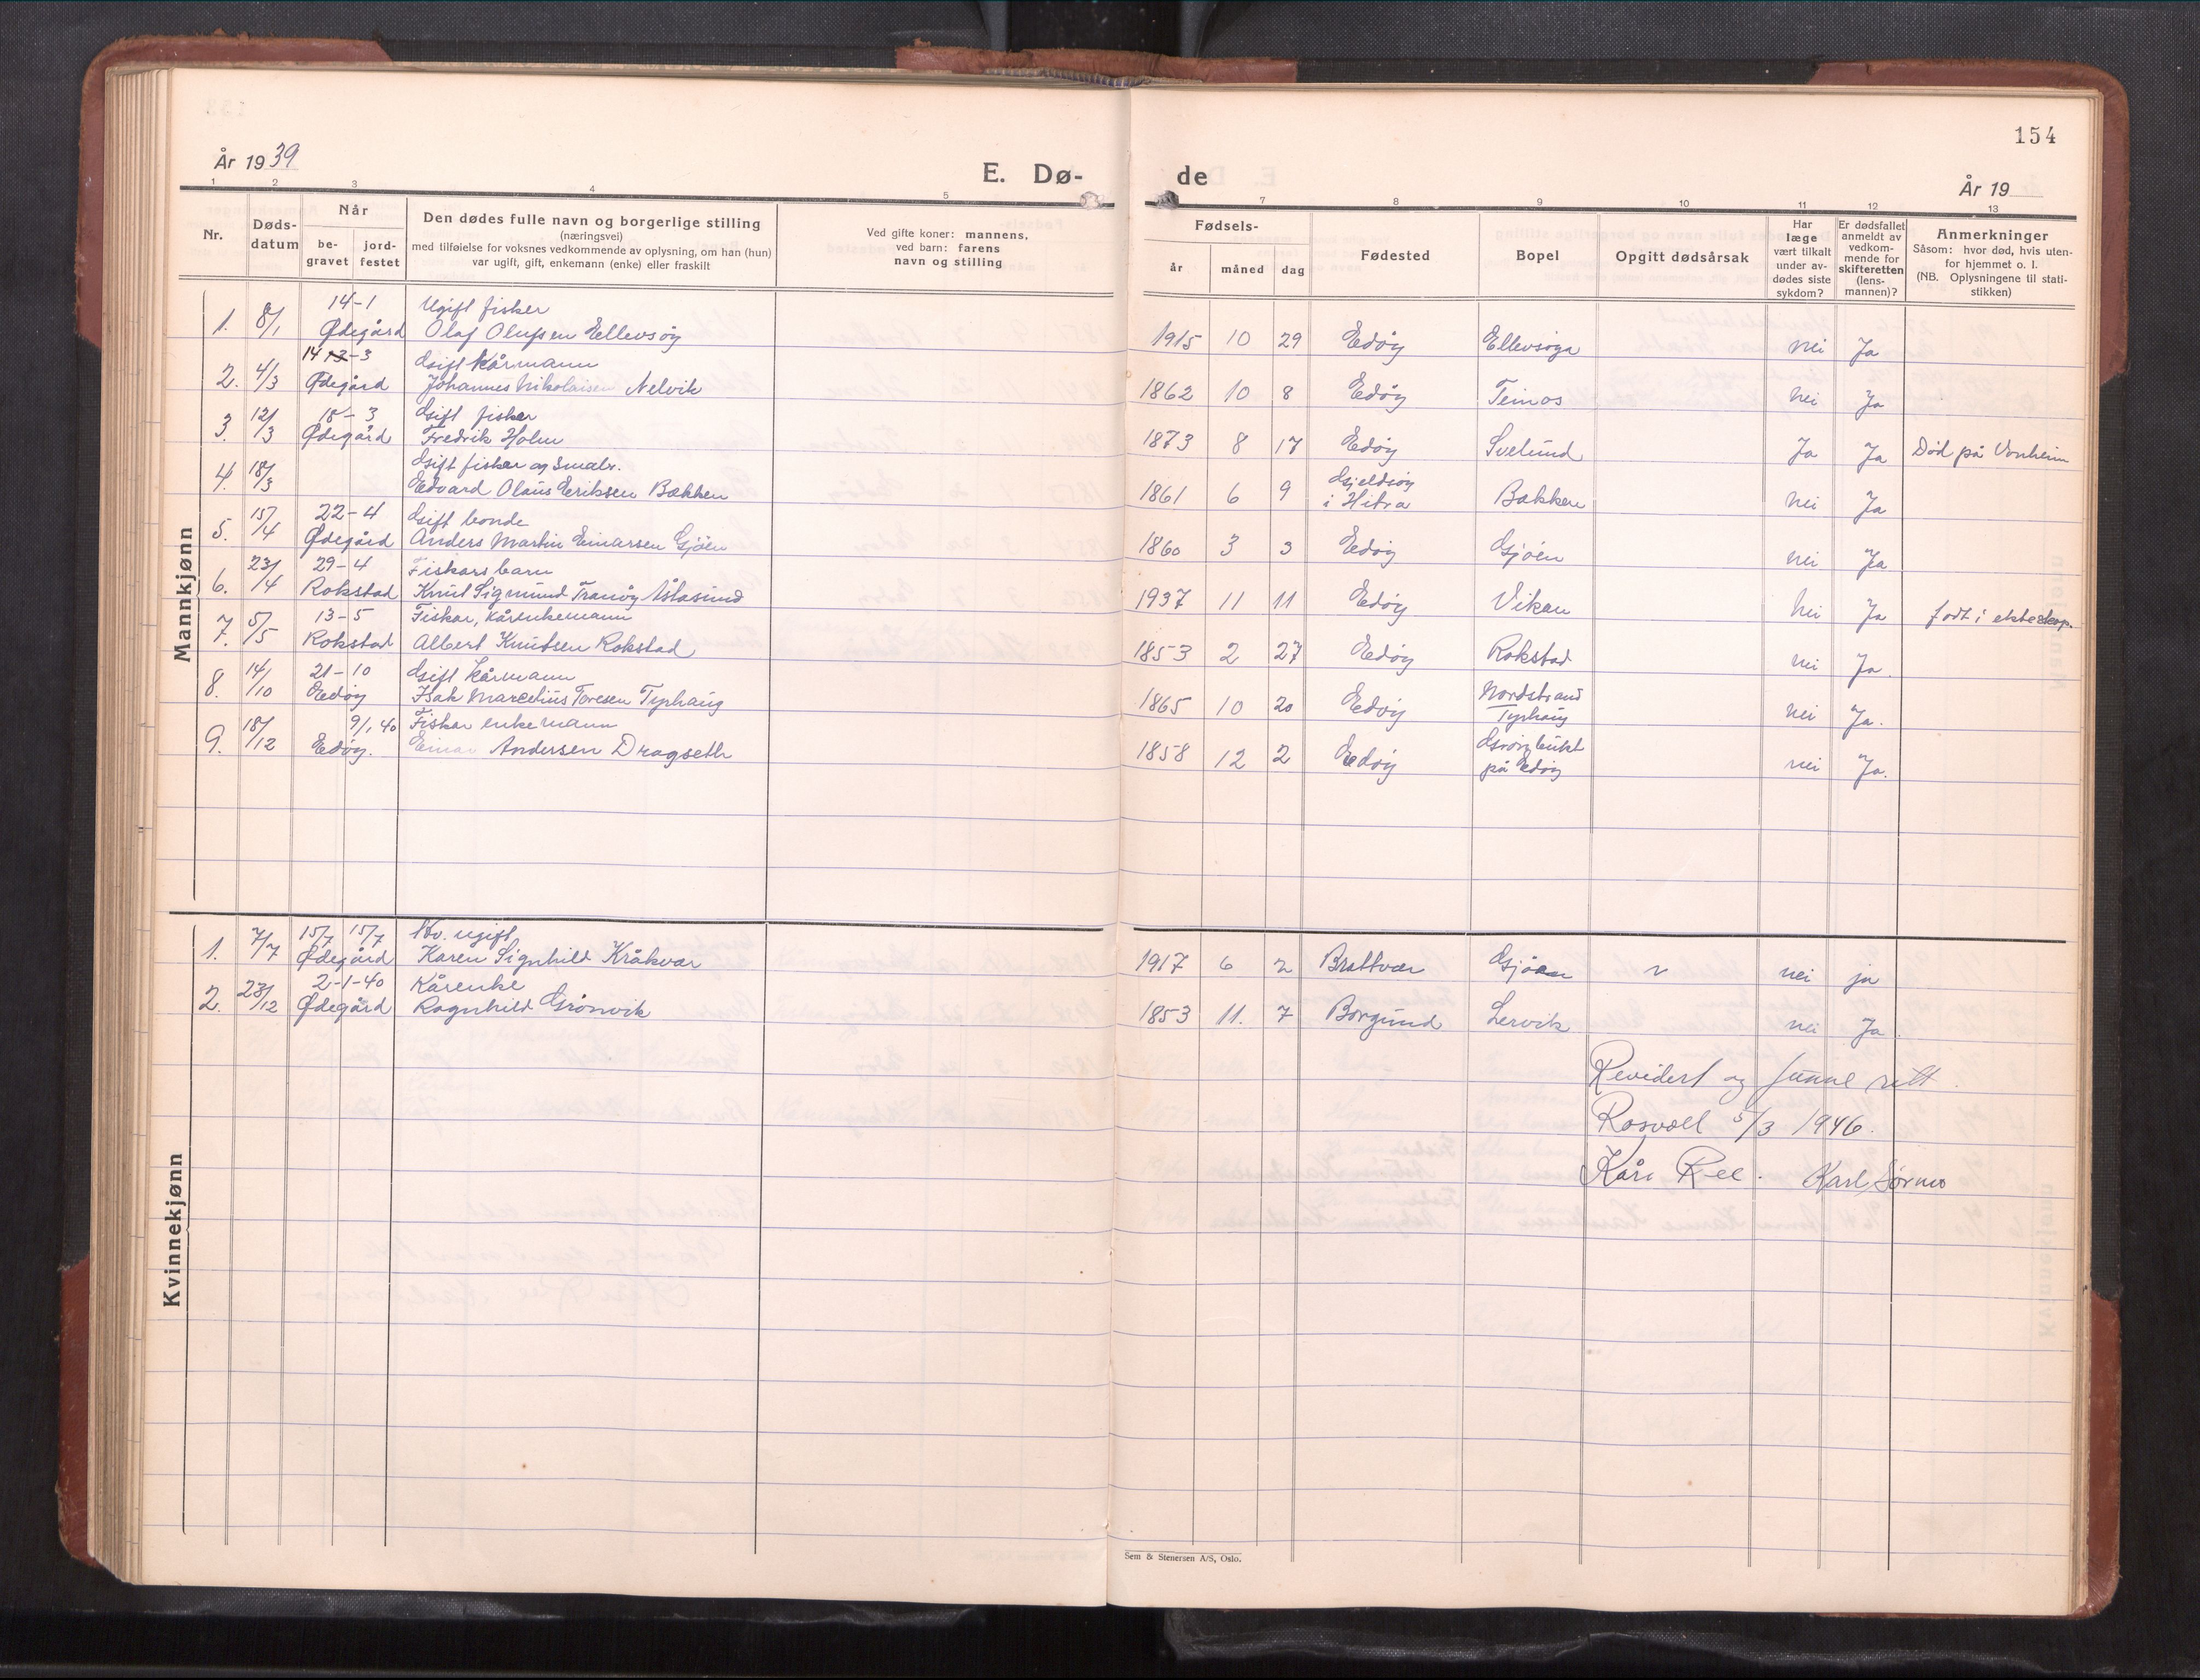 154
År 1939
E. Dø-
de
År 19
1 2 3 4 5
7 8 9 10 11 12 13
Nr.
Døds-
datum
Når
be-
gravet
jord-
festet
Den dødes fulle navn og borgerlige stilling
(næringsvei)
med tilføielse for voksnes vedkommende av oplysning, om han (hun)
var ugift, gift, enkemann (enke) eller fraskilt
Ved gifte koner: mannens,
ved barn: farens
navn og stilling
Fødsels-
år måned dag
Fødested
Bopel
Opgitt dødsårsak
Har
læge
vært tilkalt
under av-
dødes siste
sykdom?
Er dødsfallet
anmeldt av
vedkom-
mende for
skifteretten
(lens-
mannen)?
Anmerkninger
Såsom: hvor død, hvis uten-
for hjemmet o. l.
(NB. Oplysningene til stati-
stikken)
Mannkjønn
14-1 Ugift fisker
1. 8/1 Ødegård Olaf Olufsen Ellevsøy 1915 10 29 Edøy Ellevsøya nei Ja
14 13-3 Gift kårmann
2. 4/3 Ødegård Johannes Nikolaisen Nelvik 1862 10 8 Edøy Teinos nei Ja
18-3 Gift fisker
3. 12/3 Ødegård Fredrik Holm 1873 8 17 Edøy Svelund Ja Ja Død på Vonheim
Gift fisker og smabr.
4. 18/3 Edvard Olaus Eriksen Bakken 1861 6 9 Gjeldsøy
i Hitra Bakken nei Ja
22-4 Gift bonde
5. 15/4 Ødegård Anders Martin Einarsen Gjøen 1860 3 3 Edøy Gjøen nei Ja
29-4 Fiskars barn
6. 23/4 Rokstad Knut Sigmund Tranøy Aslasund 1937 11 11 Edøy Viken nei Ja født i ekteskap.
13-5 Fiskar, kårenkemann
7. 5/5 Rokstad Albert Knutsen Rokstad 1853 2 27 Edøy Rokstad nei Ja.
21-10 Gift kårmann
8. 14/10 Edøy Isak Marcelius Toresen Typhaug 1865 10 20 Edøy Nordstrand
Typhaug nei Ja.
9/1, 40 Fiskar enkemann
9. 18/12 Edøy. Einar Andersen Dragseth 1858 12 2 Edøy Grønbukt
på Edøy nei Ja.
Kvinnekjønn
15/7 15/7 Hv. ugift,
1. 7/7 Ødegård Karen Signhild Kråkvær 1917 6 2 Brattvær Gjøen nei ja
2-1-40 Kårenke
2. 23/12 Ødegård Ragnhild Grønvik 1853 11. 7 Borgund Lervik nei Ja.
Revidert og funnet rett.
Rosvoll 5/3 1946.
Kåre Ree. Karl Sørmo
Sem & Stenersen A/S, Oslo.